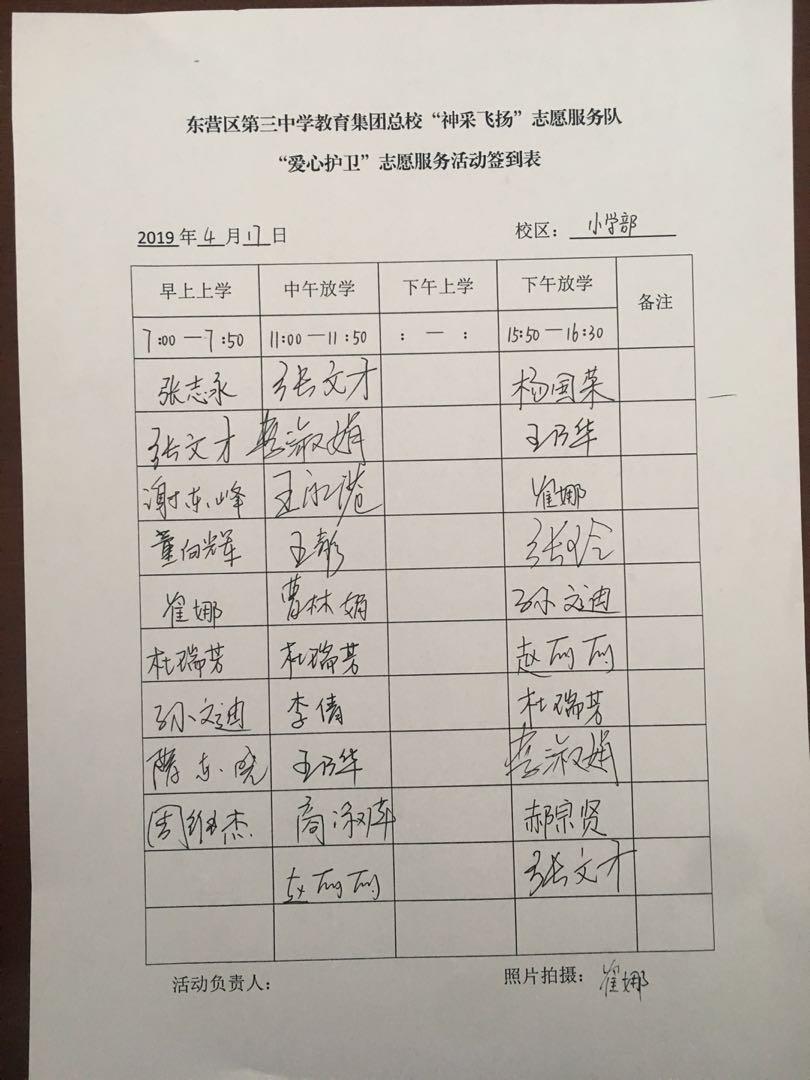 东营区第三中学教育集团总校“神采飞扬”志愿服务队
“爱心护卫”志愿服务活动签到表
2019年4月17日 校区：小学部
早上上学 中午放学 下午上学 下午放学 备注
7:00—7:50 11:00—11:50 :—: 15:50—16:30
张志永 张文才 杨国荣
张文才 李淑娟 王乃华
谢东峰 王永港 崔娜
董向辉 王彭 张玲
崔娜 曹林娟 孙文迪
杜瑞芳 杜瑞芳 赵丽丽
孙文迪 李倩 杜瑞芳
隋东晓 王乃华 李淑娟
周维杰 商淑萍 郝宗贤
赵丽丽 张文才
活动负责人： 照片拍摄：崔娜